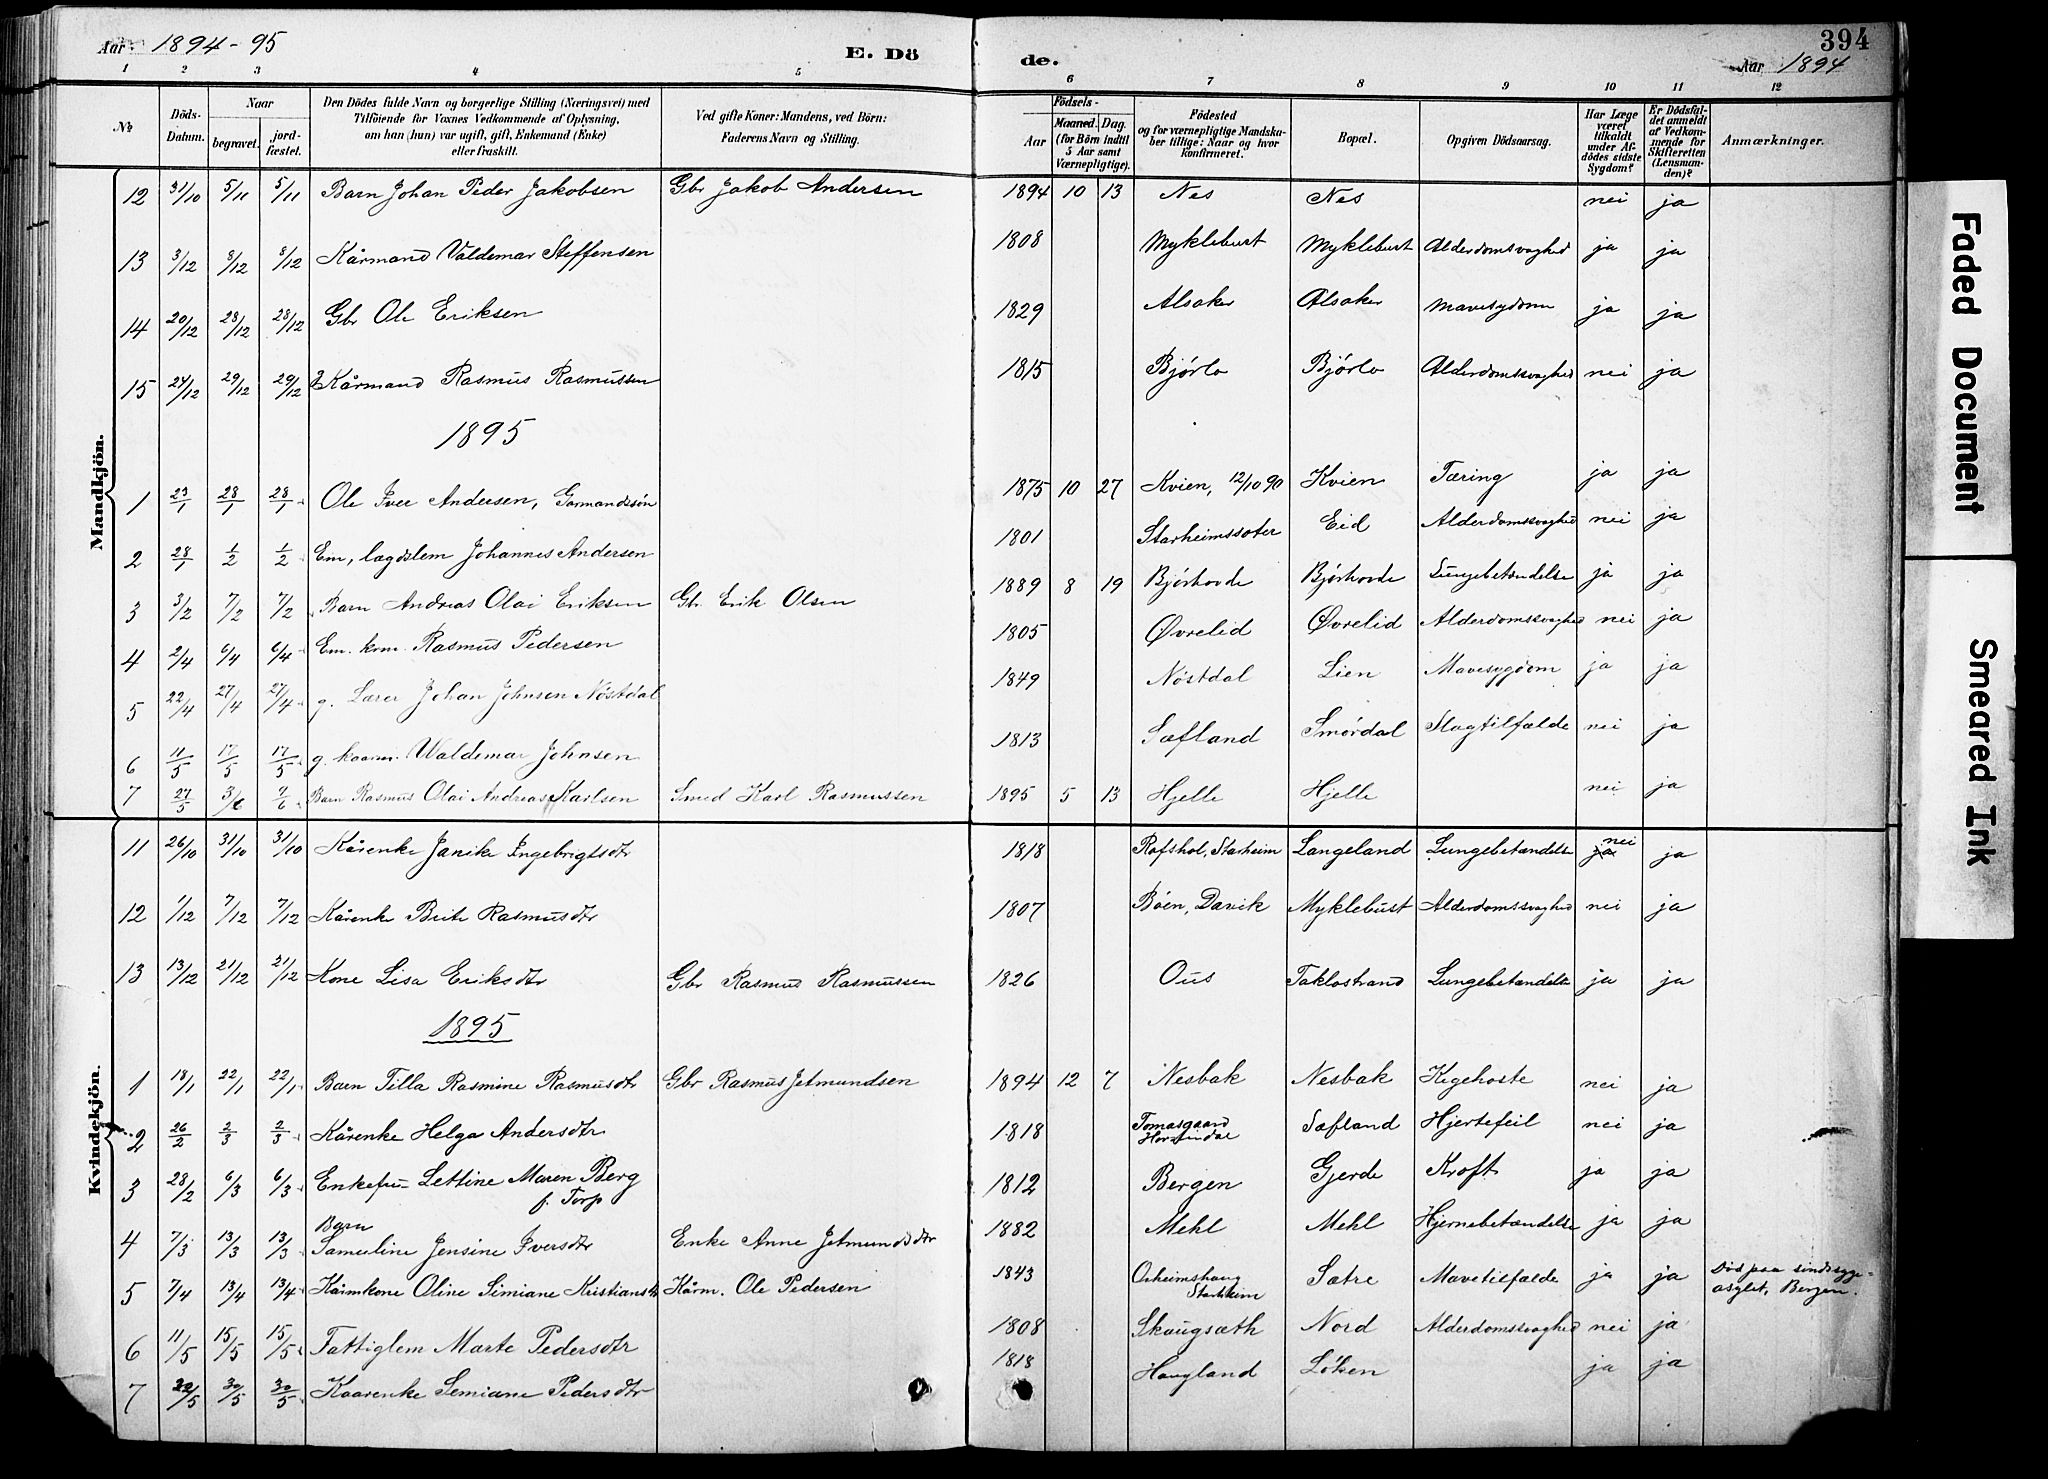 Aar 1894-95
E. Dö
de.
394
Aar 1894
1 2 3 4 5 6 7 8 9 10 11 12
№ | Döds-Datum. | Naar begravet. | jord-fæstet. | Den Dödes fulde Navn og borgerlige Stilling (Næringsvei) med Tilföiende for Voxnes Vedkommende af Oplysning, om han (hun) var ugift, gift, Enkemand (Enke) eller fraskilt. | Ved gifte Koner: Mandens, ved Börn: Faderens Navn og Stilling. | Födsels- Aar | Maaned. | Dag. (for Börn indtil 5 Aar samt Værnepligtige). | Födested og for værnepligtige Mandska-ber tillige: Naar og hvor konfirmeret. | Bopæl. | Opgiven Dödsaarsag. | Har Læge været tilkaldt under Af-dödes sidste Sygdom? | Er Dödsfal-det anmeldt af Vedkom-mende for Skifteretten (Lensman-den)? | Anmærkninger.
Mandkjön.
12 31/10 5/11 5/11 Barn Johan Peder Jakobsen Gbr Jakob Andersen 1894 10 13 Nes Nes nei ja
13 3/12 8/12 8/12 Kårmand Valdemar Steffensen 1808 Myklebust Myklebust Alderdomsvaghed ja ja
14 20/12 28/12 28/12 Gbr Ole Eriksen 1829 Alsaker Alsaker Mavesygdom ja ja
15 24/12 29/12 29/12 Kårmand Rasmus Rasmussen 1815 Bjórlo Bjórlo Alderdomssvaghed nei ja
1895
1 23/1 28/1 28/1 Ole Iver Andersen, Gårmandssön 1875 10 27 Kvien, 12/10 90 Kvien Tæring ja ja
2 28/1 1/2 1/2 Em, lægdslem Johannes Andersen 1801 Starheimssæter Eid Alderdomssvaghed nei ja
3 3/2 7/2 7/2 Barn Andreas Olai Eriksen Gbr. Erik Olsen 1889 8 19 Bjórhovde Bjórhovde Lungebetændelse ja ja
4 2/4 6/4 6/4 Em. krm. Rasmus Pedersen 1805 Øvrelid Øvrelid Alderdomssvaghed nei ja
5 22/4 27/4 27/4 g. Lærer Johan Johnsen Nöstdal 1849 Nöstdal Lien Mavesygdom ja ja
6 11/5 17/5 17/5 g. kaarm. Waldemar Johnsen 1813 Sæfland Smórdal Slagtilfælde nei ja
7 27/5 3/6 7/6 Barn Rasmus Olai Andreas Karlsen Smed Karl Rasmussen 1895 5 13 Hjelle Hjelle nei ja
Kvindekjön.
11 26/10 31/10 31/10 Kårenke Janike Ingebrigtsdtr 1818 Rafshol, Starheim Langeland Lungebetændelse ja nei ja
12 1/12 7/12 7/12 Kårenke Brite Rasmusdtr 1807 Böen, Davik Myklebust Alderdomssvaghed nei ja
13 13/12 21/12 21/12 Kone Lisa Eriksdtr Gbr Rasmus Rasmussen 1826 Ous Taklostrand Lungebetændelse ja ja
1895
1 18/1 22/1 22/1 Barn Tilla Rasmine Rasmusdtr Gbr Rasmus Jetmundsen 1894 12 7 Nesbak Nesbak Kigehoste nei ja
2 26/2 2/3 2/3 Kårenke Helga Andersdtr 1818 Tomasgaard Hornindal Sæfland Hjertefeil nei ja
3 28/2 6/3 6/3 Enkefru Lettine Maren Berg f. Torp 1812 Bergen Gjerde Kræft ja ja
4 7/3 13/3 13/3 Barn Samuline Jensine Iversdtr Enke Anne Jetmundsdtr 1882 Mehl Mehl Hjernebetændelse ja ja
5 7/4 13/4 13/4 Kårmkone Oline Simiane Kristiansdtr Kårm. Ole Pedersen 1843 Orheimshaug Starheim Sætre Mavetilfælde ja ja Död paa sindssyge-asylet, Bergen.
6 11/5 15/5 15/5 Fattiglem Marte Pedersdtr 1808 Skaugsæth Nord Alderdomssvaghed nei ja
7 22/5 30/5 30/5 Kaarenke Semiane Pedersdtr 1818 Haugland Lötsen ja ja
Faded Document
Smeared Ink